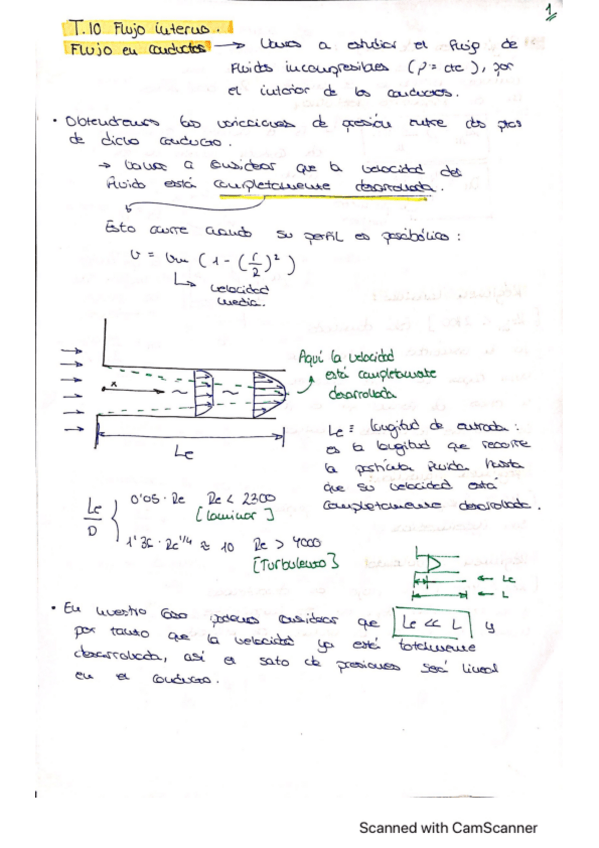 1
T.10 Flujo interno.
Flujo en conductos → Vamos a estudiar el flujo de
fluidos incompresibles (ρ = cte), por
el interior de los conductos.
• Obtendremos las variaciones de presión entre dos ptos
de dicho conducto.
→ Vamos a considerar que la velocidad del
fluido está completamente desarrollada.
Esto ocurre cuando su perfil es parabólico:
v = vm (1 - (r/2)²)
↳ velocidad
media.
Aquí la velocidad
está completamente
desarrollada
x
Le
Le ≡ longitud de entrada:
es la longitud que recorre
la partícula fluida hasta
que su velocidad está
completamente desarrollada.
Le/D { 0'05 · Re Re < 2300
[Laminar]
1'36 · Re^1/4 ≈ 10 Re > 4000
[Turbulento]
← Le
← L
• En nuestro caso podemos considerar que Le << L y
por tanto que la velocidad ya está totalmente
desarrollada, así el salto de presiones será lineal
en el conducto.
Scanned with CamScanner